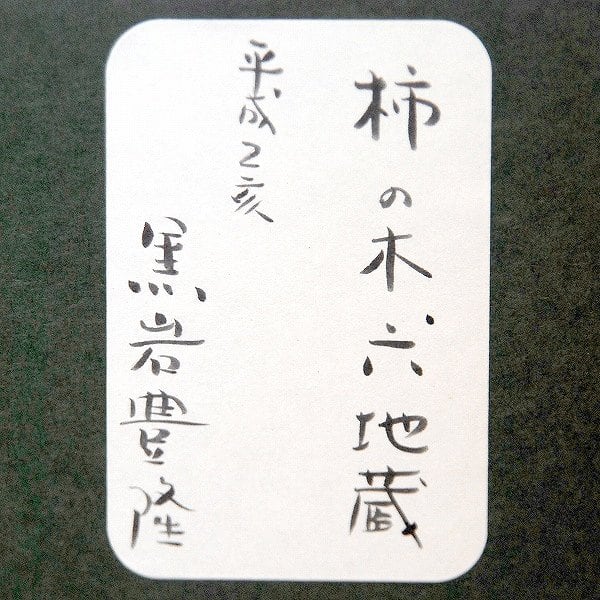 柿の木六地蔵
平成乙亥
黒岩豊隆